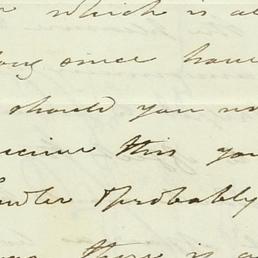 which is al
long since have
should you no
receive this you
& probably
there is a